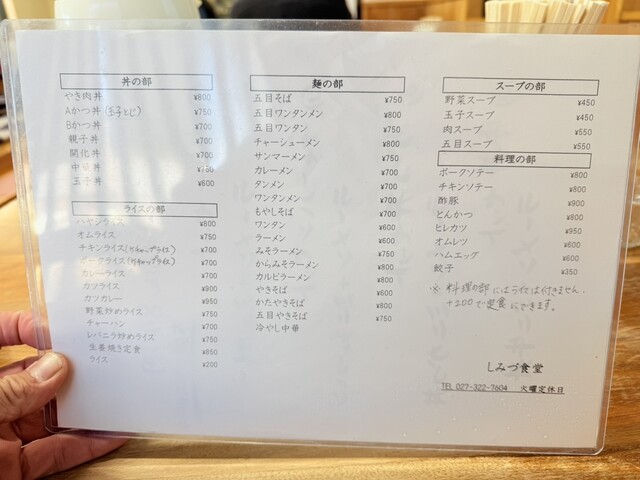 丼の部
やき肉丼 ¥800
Aかつ丼 (玉子とじ) ¥750
Bかつ丼 ¥700
親子丼 ¥700
開化丼 ¥700
中華丼 ¥750
玉子丼 ¥600
ライスの部
ハヤシライス ¥800
オムライス ¥750
チキンライス (ケチャップライス) ¥700
ポークライス (ケチャップライス) ¥700
カレーライス ¥700
カツライス ¥900
カツカレー ¥950
野菜炒めライス ¥750
チャーハン ¥700
レバニラ炒めライス ¥750
生姜焼き定食 ¥850
ライス ¥200
麺の部
五目そば ¥750
五目ワンタンメン ¥800
五目ワンタン ¥750
チャーシューメン ¥800
サンマーメン ¥750
カレーメン ¥700
タンメン ¥700
ワンタンメン ¥700
もやしそば ¥700
ワンタン ¥600
ラーメン ¥600
みそラーメン ¥750
からみそラーメン ¥800
カルビラーメン ¥800
やきそば ¥600
かたやきそば ¥800
五目やきそば ¥750
冷やし中華
スープの部
野菜スープ ¥450
玉子スープ ¥450
肉スープ ¥550
五目スープ ¥550
料理の部
ポークソテー ¥800
チキンソテー ¥800
酢豚 ¥900
とんかつ ¥800
ヒレカツ ¥950
オムレツ ¥600
ハムエッグ ¥600
餃子 ¥350
※ 料理の部にはライスは付きません
+200で定食にできます。
しみづ食堂
TEL 027-322-7604 火曜定休日